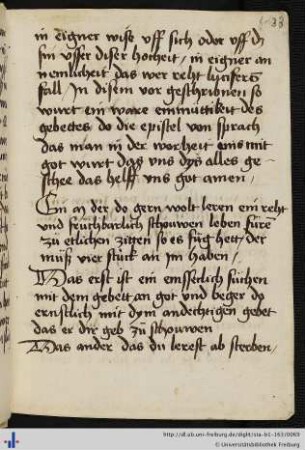 in eigner wise vff sich oder vff dz
sin vsser diser hocheit / in eigner an
nemlicheit das wer reht lucifers
fall / In disem vor geschribnen so
wurt ein ware einmüttikeit des
gebettes do die epistel von sprach
das man in der worheit eins mit
got wurt das vns dys alles ge-
schee das helff vns got amen /
Ein ander do gern wolt leren ein reht
vnd fruchtbarlich schouwen leben füren
zü etlichen zitten so es füg hett / der
müß vier stück an im haben /
Das erst ist ein emsserlich süchen
mit dem gebett an got vnd beger do
ernstlich mit dym andechtigen gebet
das er dir geb zü schouwen
Das ander das du lerest ab sterben /
http://dl.ub.uni-freiburg.de/diglit/sta-b1-163/0069
© Universitätsbibliothek Freiburg